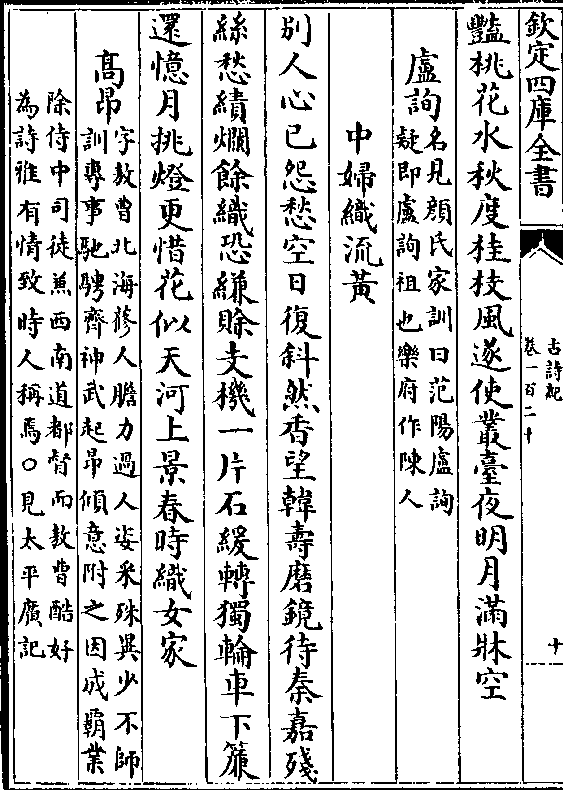 欽定四庫全書
古詩紀
卷一百二十
十
豔桃花水秋度桂枝風遂使叢臺夜明月滿牀空
盧詢
名見顔氏家訓曰范陽盧詢
疑即盧詢祖也樂府作陳人
中婦織流黃
別人心已怨愁空日復斜然香望韓壽磨鏡待秦嘉殘
絲愁績爛餘織恐縑賒支機一片石緩轉獨輪車下簾
還憶月挑燈更惜花似天河上景春時織女家
高昂
字敖曹北海蓚人膽力過人姿釆殊異少不師
訓專事馳騁齊神武起昂傾意附之因成霸業
除侍中司徒兼西南道都督而敖曹酷好
為詩雅有情致時人稱焉○見太平廣記